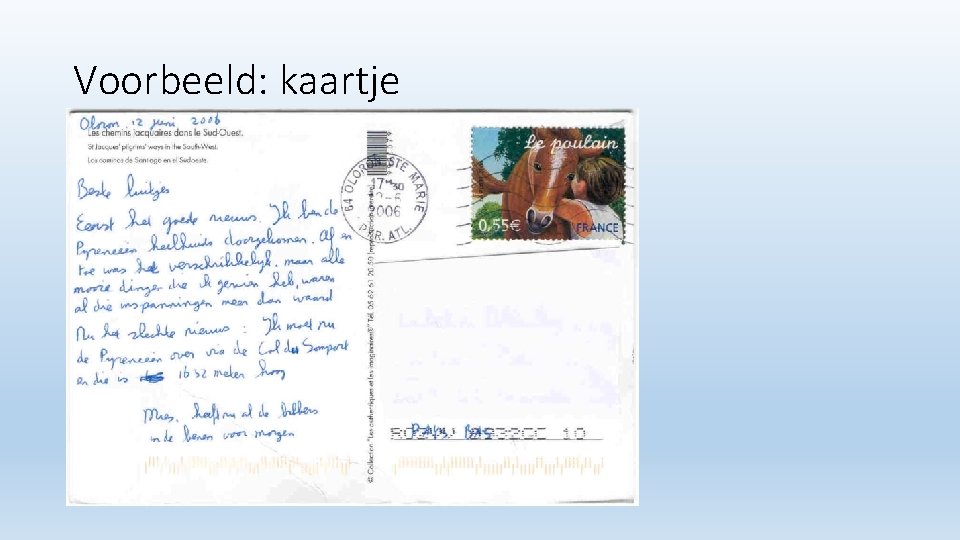 Voorbeeld: kaartje
Oloron 12 juni 2006
Les chemins jacquaires dans le Sud-Ouest.
St Jacques' pilgrims' ways in the South-West.
Los caminos de Santiago en el Sudoeste.
Beste luitjes
Eerst het goede nieuws. Ik ben de
Pyreneeën heelhuids doorgekomen. Af en
toe was het verschrikkelijk, maar alle
mooie dingen die ik gezien heb, waren
al die inspanningen meer dan waard
Nu het slechte nieuws : Ik moet nu
de Pyreneeën over via de Col du Somport
en die is 1632 meter hoog
heeft nu al de bibbers
in de benen voor morgen
64 OLORON STE MARIE
17 30
2006
PYR. ATL.
Le poulain
0,55€
FRANCE
© Collection "Les authentiques et les imaginaires" Tél. 05 62 61 20 59
Pays Bas